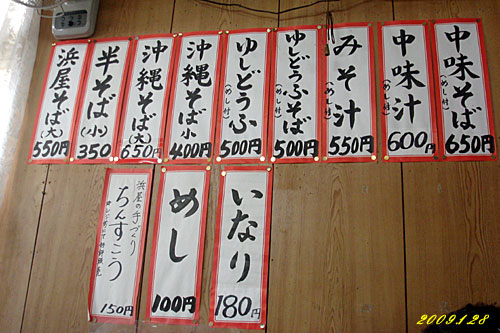 中味そば
(めし付)
650円
中味汁
600円
みそ汁
(めし付)
550円
ゆしどうふそば
(めし付)
500円
ゆしどうふ
(めし付)
500円
沖縄そば
小
400円
沖縄そば
(大)
650円
半そば
(小)
350
浜屋そば
(大)
550円
いなり
180円
めし
100円
浜屋の手づくり
ちんすこう
150円
2009.1.28